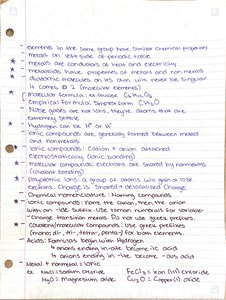 - Elements in the same group have similar chemical properties
- metals on left side of periodic table
- metals are conductors of heat and electricity
* - metalloids have properties of metals and non metals
* - diatomic molecules on its own will never be singular
It comes in 2 (molecular elements)
* - Molecular formula: ex: Glucose C6H12O6
Empirical Formula: Simplest form CH2O
- Noble gases are not ions, they're atoms that are
extremely stable
* - Hydrogen can be H+ or H-
- Ionic compounds are generally formed between metals
and nonmetals
* - Ionic compounds: Cation + anion attached
electrostatically (ionic bonding)
* - molecular compounds: electrons are shared by nonmetals
(covalent bonding)
* - polyatomic ions: a group of atoms will gain or lose
electrons. Charge is shared + delocalized charge
- Chemical nomenclature: Naming compounds
* - Ionic compounds: Name the cation, then the anion
with an -ide suffix. Use roman numerals for variable
- charge transition metals. Do not use greek prefixes.
* - Covalent/molecular Compounds: Use greek prefixes
(mono-, di-, tri-, tetra-, penta-) for both elements
- Acids: Formulas begin with Hydrogen
↳ anions ending in -ate become -ic acid
↳ anions ending in -ite become -ous acid
- Metal + nonmetal = ionic
ex: NaCl = sodium chloride FeCl3 = Iron (III) chloride
MgO = Magnesium oxide Cu2O = Copper (I) oxide